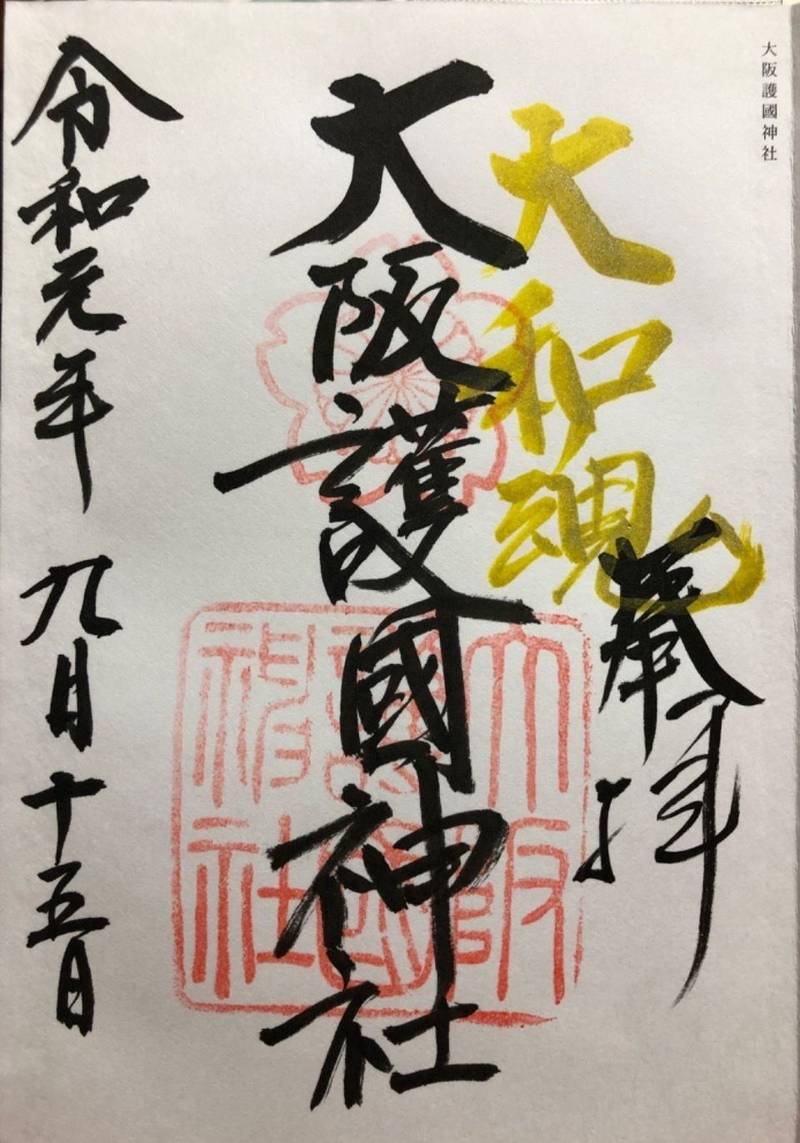 大阪護國神社
大和魂
奉拝
大阪護國神社
大阪護國神社
令和元年 九月十五日